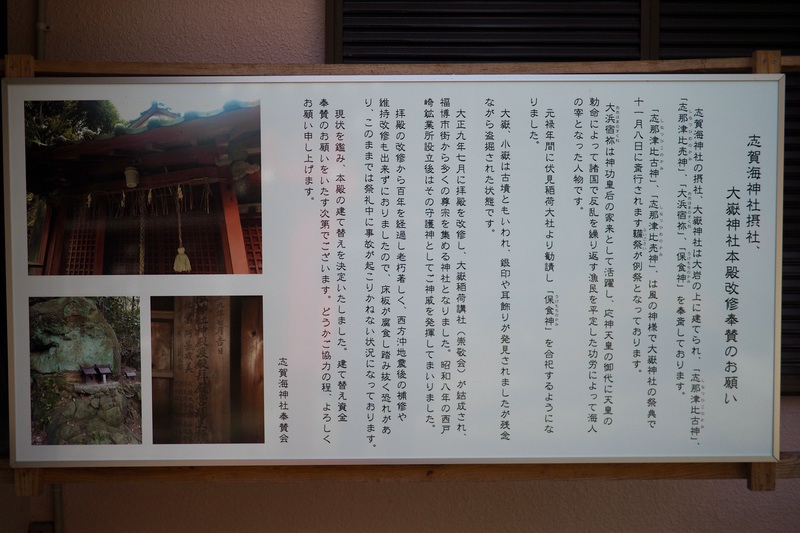 志賀海神社摂社、
大嶽神社本殿改修奉賛のお願い
志賀海神社の摂社、大嶽神社は大岩の上に建てられ、「志那津比古神」、
「志那津比売神」、「大浜宿祢」、「保食神」を奉斎しております。
「志那津比古神」、「志那津比売神」、は風の神様で大嶽神社の祭典で
十一月八日に斎行されます鞴祭が例祭となっております。
大浜宿祢は神功皇后の家来として活躍し、応神天皇の御代に天皇の
勅命によって諸国で反乱を繰り返す漁民を平定した功労によって海人
の宰となった人物です。
元禄年間に伏見稲荷大社より勧請し「保食神」を合祀するようにな
りました。
大嶽、小嶽は古墳ともいわれ、銀印や耳飾りが発見されましたが残念
ながら盗掘された状態です。
大正九年七月に拝殿を改修し、大嶽稲荷講社（崇敬会）が結成され、
福博市街から多くの尊崇を集める神社となりました。昭和八年の西戸
崎鉱業所設立後はその守護神としてご神威を発揮してまいりました。
拝殿の改修から百年を経過し老朽著しく、西方沖地震後の補修や
維持改修も出来ずにおりましたので、床板が腐食し踏み抜く恐れがあ
り、このままでは祭礼中に事故が起こりかねない状況になっております。
現状を鑑み、本殿の建て替えを決定いたしました。建て替え資金
奉賛のお願いをいたす次第でございます。どうかご協力の程、よろしく
お願い申し上げます。
志賀海神社奉賛会